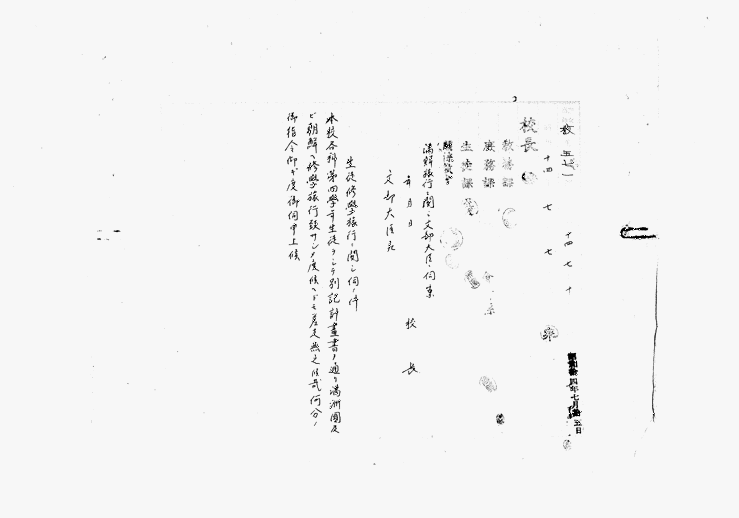 校長
教務課
庶務課
生徒課
十四 七 七
十四 七 十
昭和拾四年七月拾五日
満鮮旅行ニ関シ文部大臣ヘ伺案
年月日
校長
文部大臣宛
生徒修學旅行ニ関シ伺ノ件
本校各科第四學年生徒ヲシテ別記計畫書ノ通リ満洲國及
ビ朝鮮ヘ修學旅行致サシメ度候ヘドモ差支無之候哉何分ノ
御指令仰ギ度御伺申上候